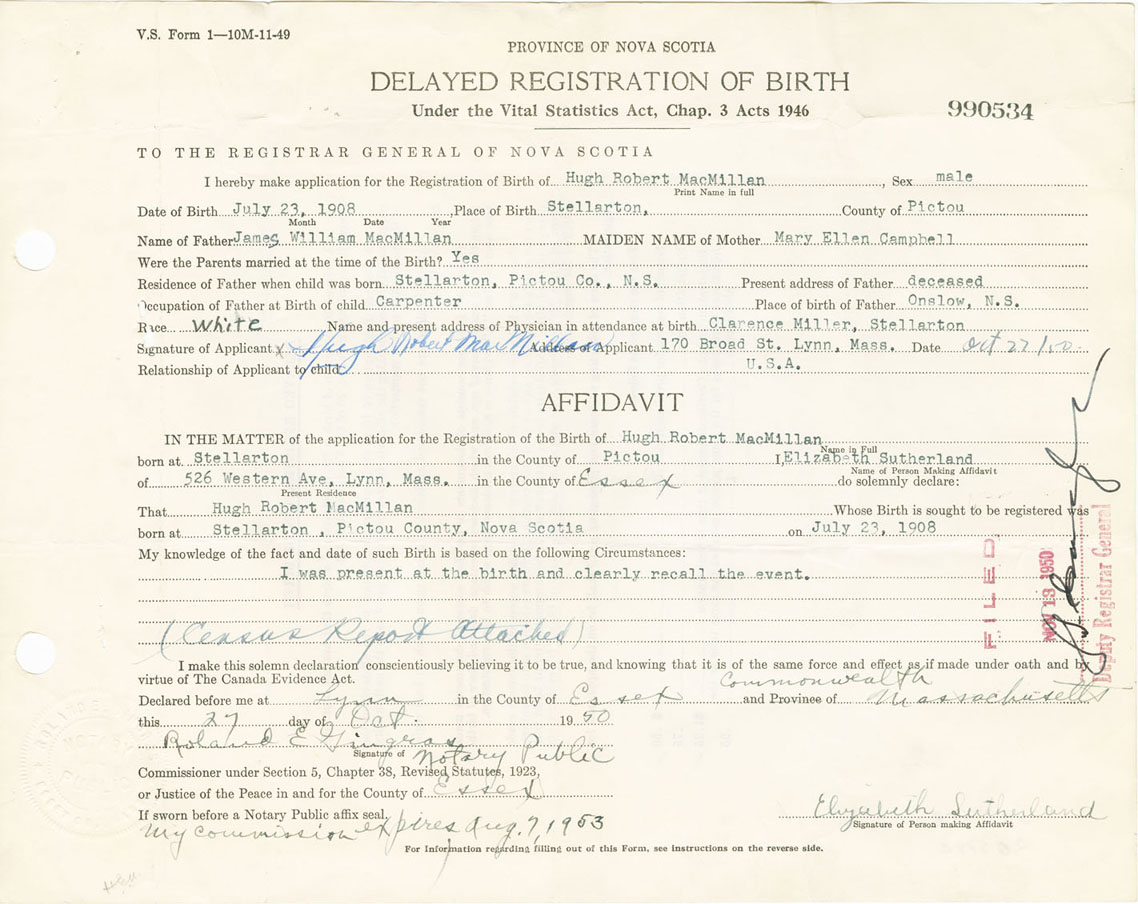 V.S. Form 1—10M-11-49
PROVINCE OF NOVA SCOTIA
DELAYED REGISTRATION OF BIRTH
Under the Vital Statistics Act, Chap. 3 Acts 1946
990534
TO THE REGISTRAR GENERAL OF NOVA SCOTIA
I hereby make application for the Registration of Birth of Hugh Robert MacMillan, Sex male
Print Name in full
Date of Birth July 23, 1908, Place of Birth Stellarton, County of Pictou
Month Date Year
Name of Father James William MacMillan MAIDEN NAME of Mother Mary Ellen Campbell
Were the Parents married at the time of the Birth? Yes
Residence of Father when child was born Stellarton, Pictou Co., N.S. Present address of Father deceased
Occupation of Father at Birth of child Carpenter Place of birth of Father Onslow, N.S.
Race White Name and present address of Physician in attendance at birth Clarence Miller, Stellarton
Signature of Applicant x Hugh Robert MacMillan Address of Applicant 170 Broad St. Lynn, Mass. Date Oct 27/50
Relationship of Applicant to child U.S.A.
AFFIDAVIT
IN THE MATTER of the application for the Registration of the Birth of Hugh Robert MacMillan
Name in Full
born at Stellarton in the County of Pictou I, Elizabeth Sutherland
Name of Person Making Affidavit
of 526 Western Ave, Lynn, Mass. in the County of Essex do solemnly declare:
Present Residence
That Hugh Robert MacMillan Whose Birth is sought to be registered was
born at Stellarton, Pictou County, Nova Scotia on July 23, 1908
My knowledge of the fact and date of such Birth is based on the following Circumstances:
I was present at the birth and clearly recall the event.
(Census Report Attached)
FILED
NOV 13 1950
Deputy Registrar General
I make this solemn declaration conscientiously believing it to be true, and knowing that it is of the same force and effect as if made under oath and by
virtue of The Canada Evidence Act.
Commonwealth
Declared before me at Lynn in the County of Essex and Province of Massachusetts
this 27 day of Oct. 1950
Roland E Gingras
Signature of Notary Public
Commissioner under Section 5, Chapter 38, Revised Statutes, 1923,
or Justice of the Peace in and for the County of Essex
If sworn before a Notary Public affix seal.
My commission expires Aug. 7, 1953
Elizabeth Sutherland
Signature of Person making Affidavit
For Information regarding filling out of this Form, see instructions on the reverse side.